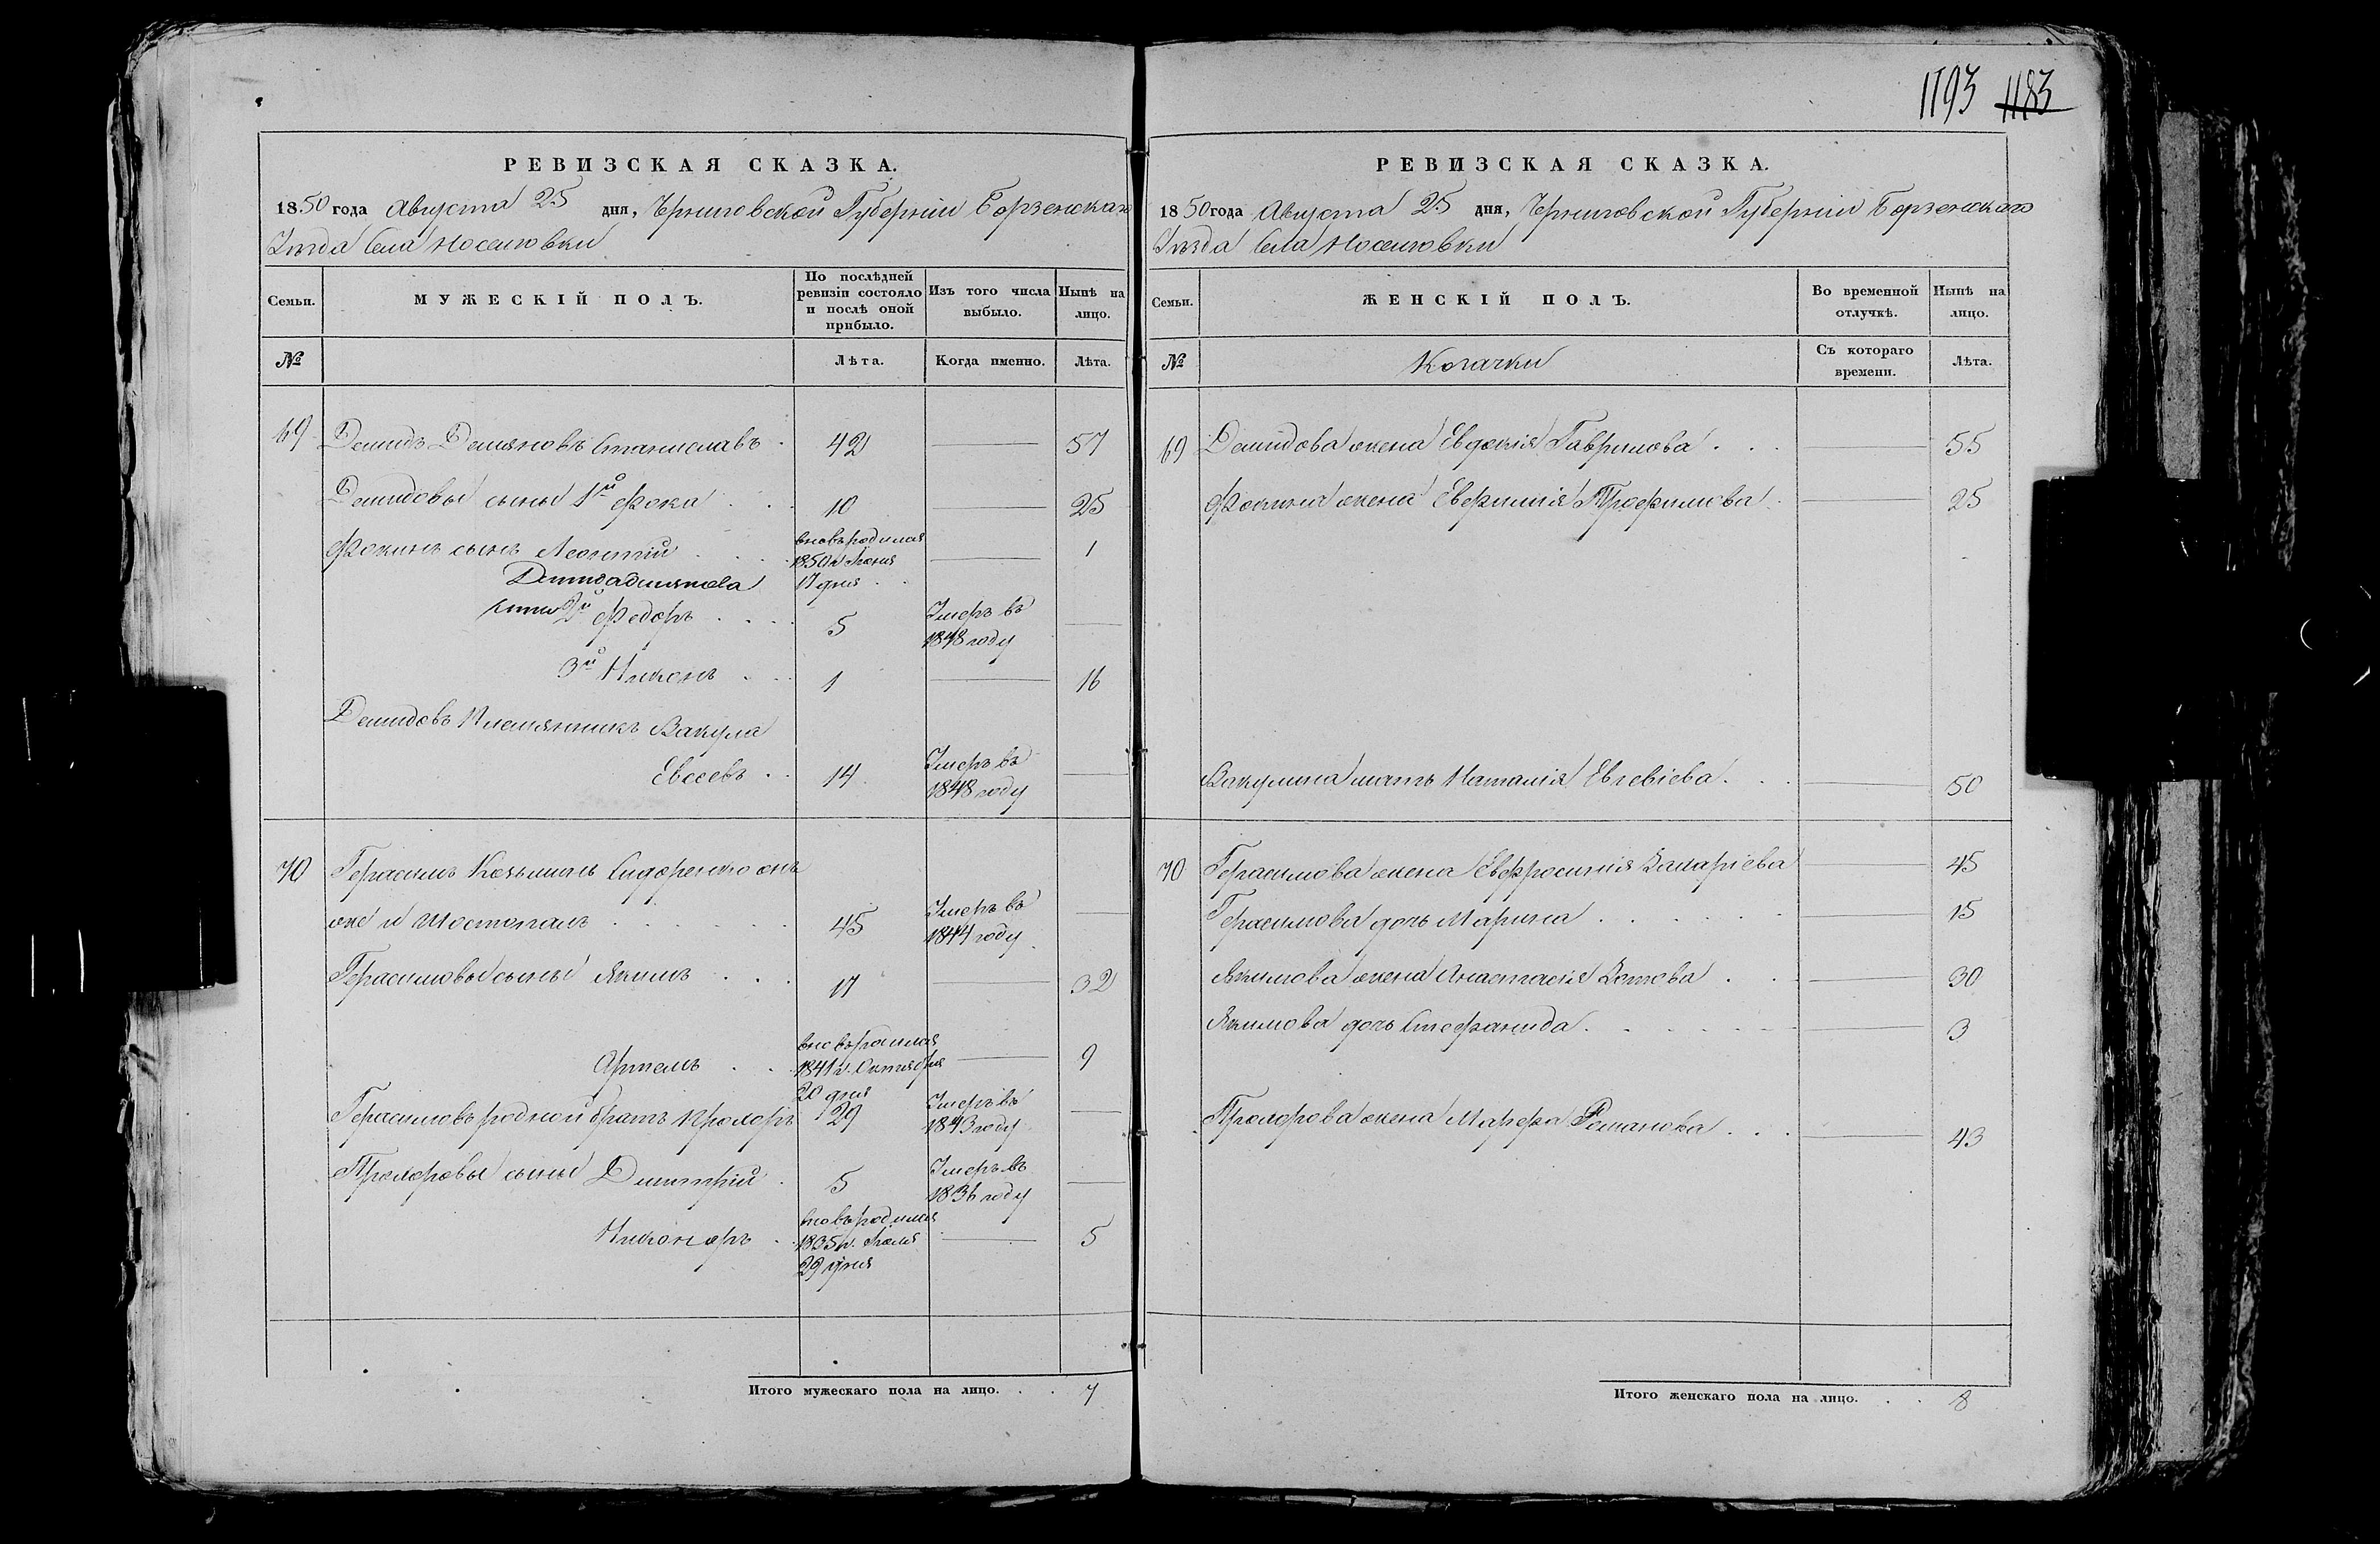 1193 1183
РЕВИЗСКАЯ СКАЗКА.
1850 года Августа 25 дня, Черниговской Губернии Борзенскаго
Уѣзда Села Носеловки
Семьи.
МУЖЕСКІЙ ПОЛЪ.
По послѣдней ревизіи состояло и послѣ оной прибыло.
Изъ того числа выбыло.
Нынѣ на лицо.
№
Лѣта.
Когда именно.
Лѣта.
69 Демидъ Демяновъ Станиславъ 42 57
Демидовы сыны 1й Фока 10 25
Фокинъ сынъ Леонтій вновьродился 1
1850 г. Іюня
17 дня
Демида Демянова
сыны 2й Федоръ 5 Умеръ въ
1848 году
3й Никонъ 1 16
Демидовъ Племянникъ Вакула
Евсеевъ 14 Умеръ въ
1848 году
70 Герасимъ Козьминъ Сидоренко онъ
же и Шостопалъ 45 Умеръ въ
1844 году
Герасимовы сыны Якимъ 17 32
Артемъ вновьродился 9
1841 г. Октября
20 дня
Герасимовъ родной братъ Прохоръ 29 Умеръ въ
1843 году
Прохоровы сыны Димитрій 5 Умеръ въ
1836 году
Никоноръ вновьродился 5
1835 г. Іюля
29 дня
Итого мужескаго пола на лицо. 7
РЕВИЗСКАЯ СКАЗКА.
1850 года Августа 25 дня, Черниговской Губернии Борзенскаго
Уѣзда Села Носеловки
Семьи.
ЖЕНСКІЙ ПОЛЪ.
Во временной отлучкѣ.
Нынѣ на лицо.
№
Козачки
Съ котораго времени.
Лѣта.
69 Демидова жена Евдокія Гаврилова 55
Фокина жена Евфимія Трофимова 25
Вакулина мать Наталія Евсевіева 50
70 Герасимова жена Евфросинія Захаріева 45
Герасимова дочь Марина 15
Якимова жена Анастасія Котова 30
Якимова дочь Стефанида 3
Прохорова жена Марфа Романова 43
Итого женскаго пола на лицо. 8